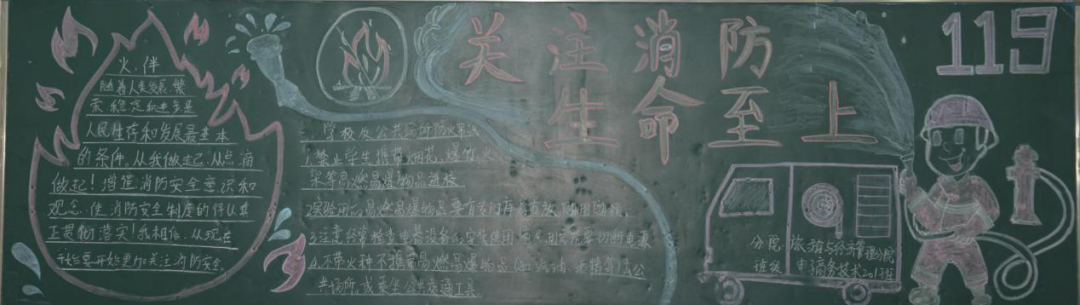 关注消防
生命至上
119
火.伴
随着人类发展.繁
荣稳定和进步是
人民生存和发展最基本
的条件.从我做起.从点滴
做起！增强消防安全意识和
观念.使消防安全制度的
正贯彻落实！我相信.从现在
开始要开始更加关注消防安全.
学校及公共场所防火常识
1.禁止学生携带烟花、爆竹、火
柴等易燃易爆物品进校
2.实验用易燃易爆物品要有专门库房存放
3.注意经常检查电器设备 安装使用 切断电源
4.不带火种不携带易燃易爆物品 公
共场所或乘坐公共交通工具
分院:旅游与经济管理分院
班级 电子商务技术2013班